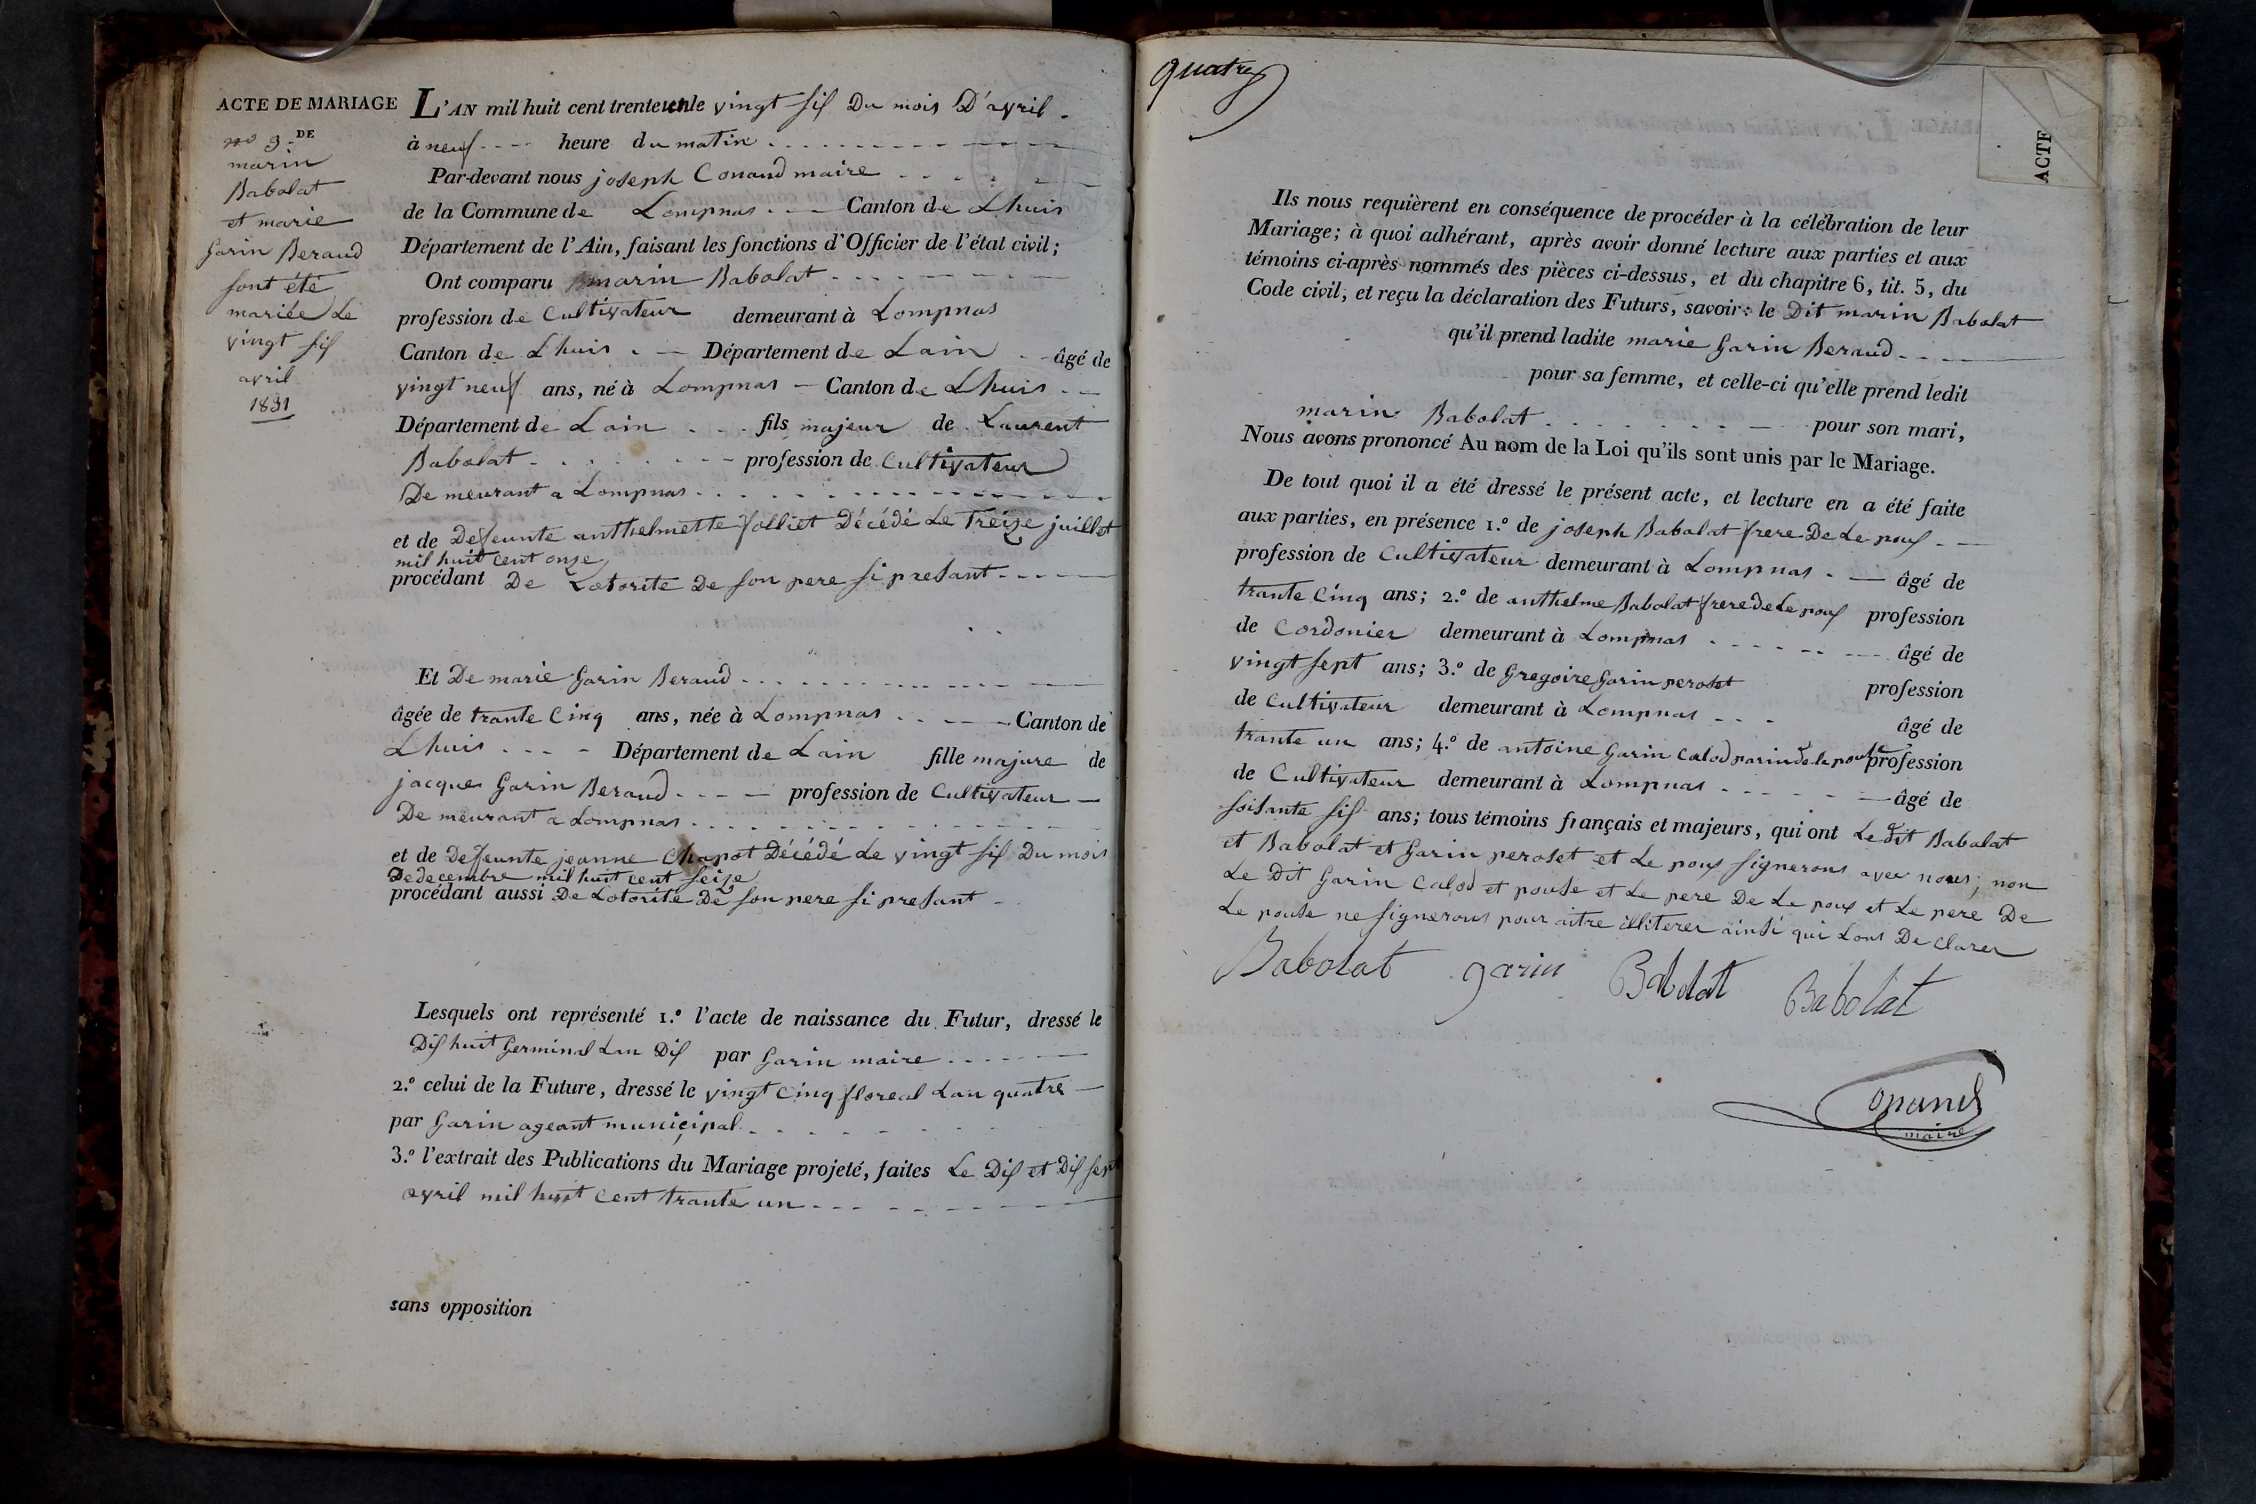 ACTE DE MARIAGE
no 3. DE
marin
Babolat
et marie
Garin Beraud
sont été
mariée Le
vingt sis
avril
1831
L'AN mil huit cent trente un le vingt sis Du mois D'avril
à neuf heure du matin
Par-devant nous joseph Conand maire
de la Commune de Lompnas Canton de Lhuis
Département de l'Ain, faisant les fonctions d'Officier de l'état civil;
Ont comparu marin Babolat
profession de Cultivateur demeurant à Lompnas
Canton de Lhuis Département de Lain âgé de
vingt neuf ans, né à Lompnas Canton de Lhuis
Département de Lain fils majeur de Laurent
Babolat profession de Cultivateur
De meurant a Lompnas
et de Defeunte anthelmette folliet Décédé Le treize juillet
mil huit cent onze
procédant De Lotorite De son pere si presant
Et De marie Garin Beraud
âgée de trante Cinq ans, née à Lompnas Canton de
Lhuis Département de Lain fille majure de
jacque Garin Beraud profession de Cultivateur
De meurant a Lompnas
et de Defeunte jeanne Chapot Décédé Le vingt sis Du mois
De decembre mil huit cent seize
procédant aussi De Lotorite De son pere si presant
Lesquels ont représenté 1.º l'acte de naissance du Futur, dressé le
Dis huit Germinal Lan Dis par Garin maire
2.º celui de la Future, dressé le vingt Cinq floreal Lan quatre
par Garin ageant municipal
3.º l'extrait des Publications du Mariage projeté, faites Le Dis et Dis sept
avril mil huit Cent trante un
sans opposition
quatre
ACTE
Ils nous requièrent en conséquence de procéder à la célébration de leur
Mariage; à quoi adhérant, après avoir donné lecture aux parties et aux
témoins ci-après nommés des pièces ci-dessus, et du chapitre 6, tit. 5, du
Code civil, et reçu la déclaration des Futurs, savoir: le Dit marin Babolat
qu'il prend ladite marie Garin Beraud
pour sa femme, et celle-ci qu'elle prend ledit
marin Babolat pour son mari,
Nous avons prononcé Au nom de la Loi qu'ils sont unis par le Mariage.
De tout quoi il a été dressé le présent acte, et lecture en a été faite
aux parties, en présence 1.º de joseph Babolat frere De Le pous
profession de Cultivateur demeurant à Lompnas âgé de
trante Cinq ans; 2.º de anthelme Babolat frere de Le pous profession
de Cordonier demeurant à Lompnas âgé de
vingt sept ans; 3.º de Gregoire Garin peroset profession
de Cultivateur demeurant à Lompnas âgé de
trante un ans; 4.º de antoine Garin Calod parin de la pouse profession
de Cultivateur demeurant à Lompnas âgé de
soisante sis ans; tous témoins français et majeurs, qui ont Le dit Babolat
et Babolat et Garin peroset et Le pous signerons avec nous; non
Le Dit Garin Calod et pouse et Le pere De Le pous et Le pere De
Le pouse ne signerons pour aitre illiterer ainsi qui Lont De Clarer
Babolat garin Babolat Babolat
Conand
maire